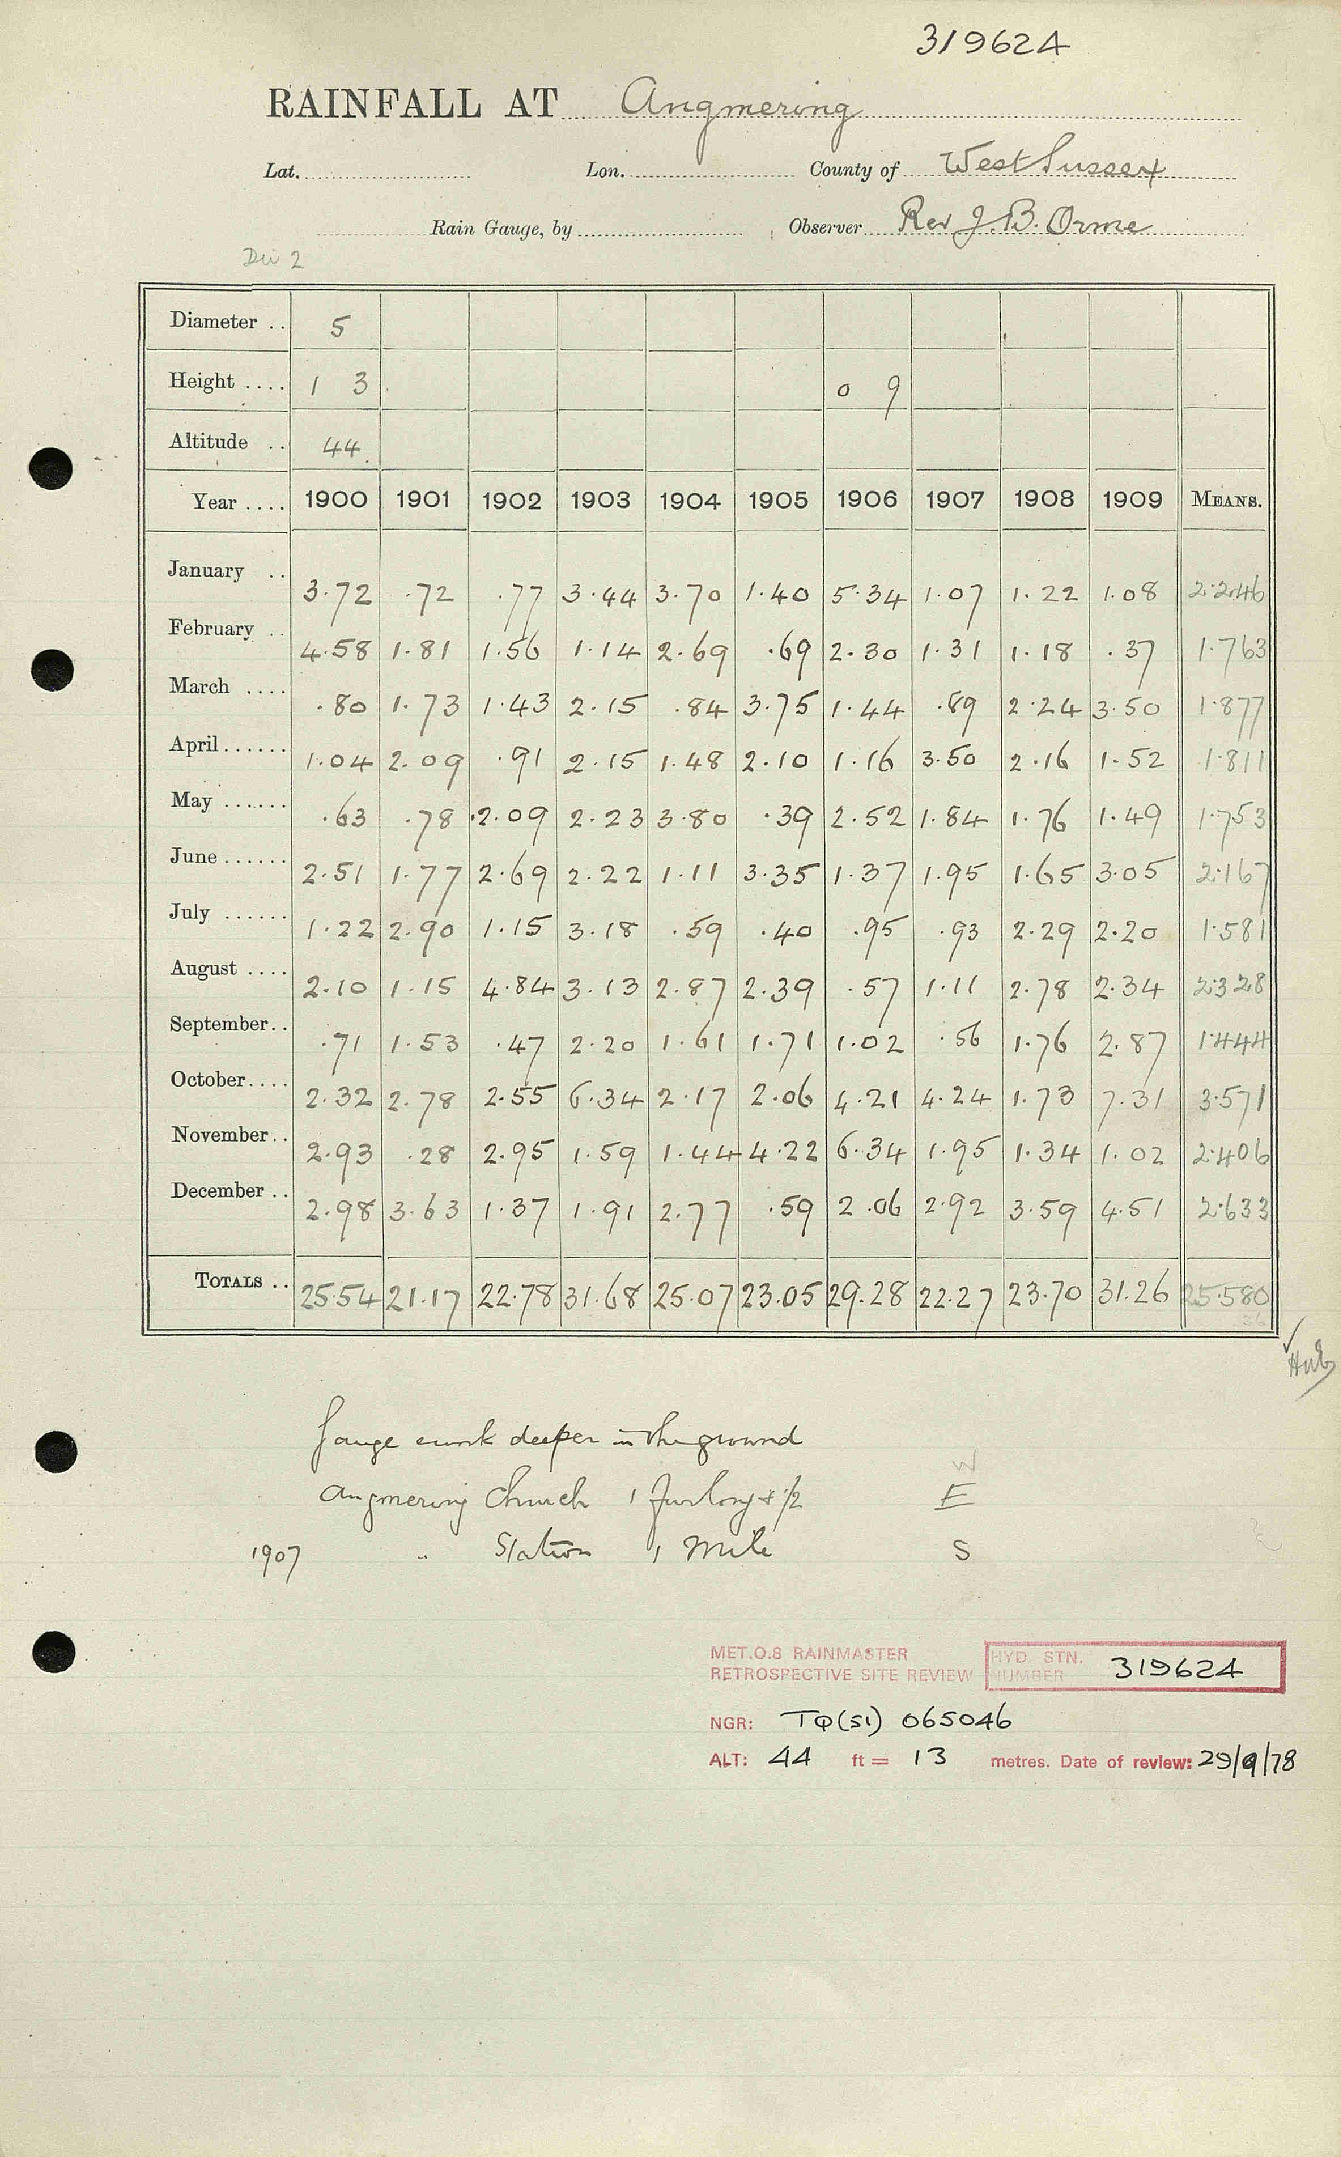 319624
RAINFALL AT Angmering
Lat. Lon. County of West Sussex
Rain Gauge, by Observer Rev J. B. Orme
Div 2
Diameter .. 5
Height .... 1 3 0 9
Altitude .. 44
Year .... 1900 1901 1902 1903 1904 1905 1906 1907 1908 1909 MEANS.
January .. 3.72 .72 .77 3.44 3.70 1.40 5.34 1.07 1.22 1.08 2.246
February .. 4.58 1.81 1.56 1.14 2.69 .69 2.30 1.31 1.18 .37 1.763
March .... .80 1.73 1.43 2.15 .84 3.75 1.44 .89 2.24 3.50 1.877
April ...... 1.04 2.09 .91 2.15 1.48 2.10 1.16 3.50 2.16 1.52 1.811
May ...... .63 .78 2.09 2.23 3.80 .39 2.52 1.84 1.76 1.49 1.753
June ...... 2.51 1.77 2.69 2.22 1.11 3.35 1.37 1.95 1.65 3.05 2.167
July ...... 1.22 2.90 1.15 3.18 .59 .40 .95 .93 2.29 2.20 1.581
August .... 2.10 1.15 4.84 3.13 2.87 2.39 .57 1.11 2.78 2.34 2.328
September.. .71 1.53 .47 2.20 1.61 1.71 1.02 .56 1.76 2.87 1.444
October.... 2.32 2.78 2.55 6.34 2.17 2.06 4.21 4.24 1.73 7.31 3.571
November.. 2.93 .28 2.95 1.59 1.44 4.22 6.34 1.95 1.34 1.02 2.406
December .. 2.98 3.63 1.37 1.91 2.77 .59 2.06 2.92 3.59 4.51 2.633
TOTALS .. 25.54 21.17 22.78 31.68 25.07 23.05 29.28 22.27 23.70 31.26 25.580
Gauge sunk deeper in the ground
W
Angmering Church 1 furlong & 1/2 E
1907 " Station 1 Mile S
MET.O.8 RAINMASTER
RETROSPECTIVE SITE REVIEW
HYD. STN. NUMBER 319624
NGR: TQ(51) 065046
ALT: 44 ft = 13 metres. Date of review: 29/9/78